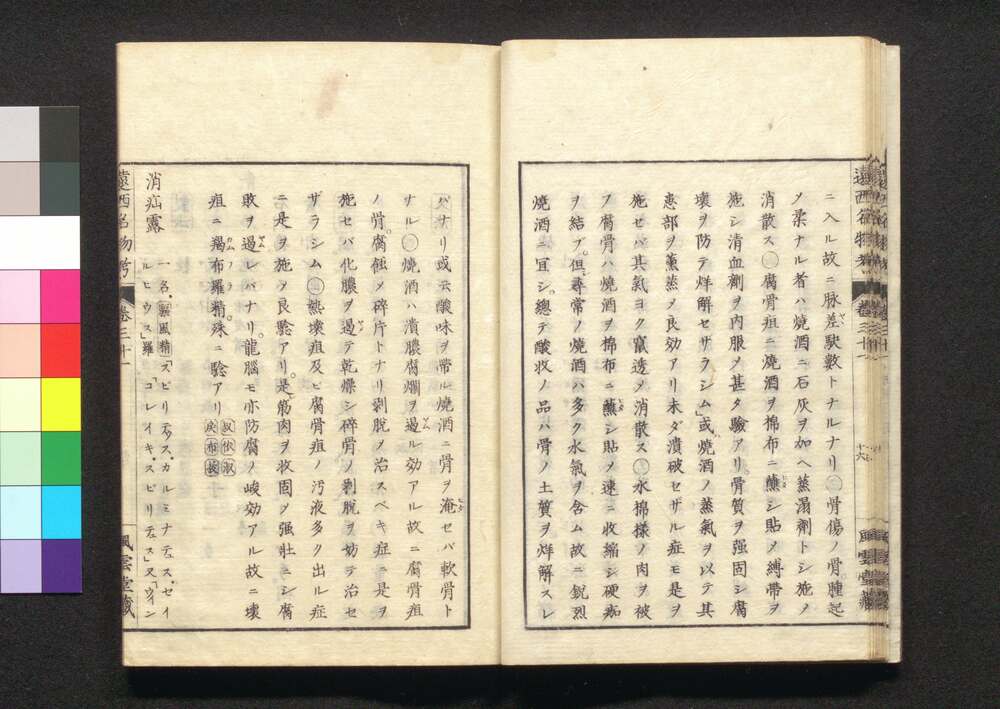 ニ入ル故ニ脉差缺數トナルナリ○骨傷ノ骨腫起
メ柔ナル者ハ燒酒ニ石灰ヲ加ヘ蒸溻劑トシ施ノ
消散ス○腐骨疽ニ燒酒ヲ棉布ニ蘸シ貼メ縛帶ヲ
施シ清血劑ヲ内服メ甚タ驗アリ骨質ヲ强固シ腐
壞ヲ防テ烊解セザラシム」或燒酒ノ蒸氣ヲ以テ其
患部ヲ薫蒸メ良効アリ未ダ潰破セザル症モ是ヲ
施セバ其氣ヨク竄透メ消散ス○氷棉樣ノ肉ヲ被
フ腐骨ハ燒酒ヲ棉布ニ蘸シ貼メ速ニ收縮シ硬痂
ヲ結ブ。但尋常ノ燒酒ハ多ク水氣ヲ含ム故ニ銳烈
燒酒ニ宜シ。總テ酸收ノ品ハ骨ノ土質ヲ烊解スレ
バナリ或云酸味ヲ帶ル燒酒ニ骨ヲ淹セバ軟骨ト
ナル○燒酒ハ潰膿腐爛ヲ遏ル効アル故ニ腐骨疽
ノ骨腐蝕メ碎片トナリ剥脫メ治スベキ症ニ是ヲ
施セバ化膿ヲ遏テ乾燥シ碎骨ノ剥脫ヲ妨テ治セ
ザラシム○熱壞疽及ビ腐骨疽ノ汚液多ク出ル症
ニ是ヲ施メ良驗アリ。是筋肉ヲ收固メ强壯ニシ腐
敗ヲ遏レバナリ。龍腦モ亦防腐ノ峻効アル故ニ壞
疽ニ羯布羅精殊ニ驗アリ
消疝露 一名驅風精「スピリテュス・カルミナテュス・セイ
ルヒウス」羅「コレイキ・スピリテュス」又「ウイン
遠西名物考 卷三十
風雲堂藏